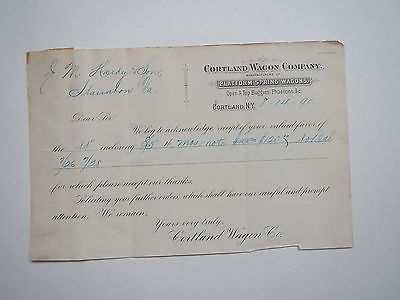 J. M. Hardy & Son,
Staunton Va.
CORTLAND WAGON COMPANY,
MANUFACTURERS OF
PLATFORM SPRING WAGONS,
Open & Top Buggies, Phaetons &c.
CORTLAND, N.Y. 8/14 90
Dear Sir
We beg to acknowledge receipt of your valued favor of
the 11" inclosing 4 mos note $120
7/26 7/28
for which please accept our thanks.
Soliciting your further orders, which shall have our careful and prompt
attention, We remain,
Yours very truly,
Cortland Wagon Co.